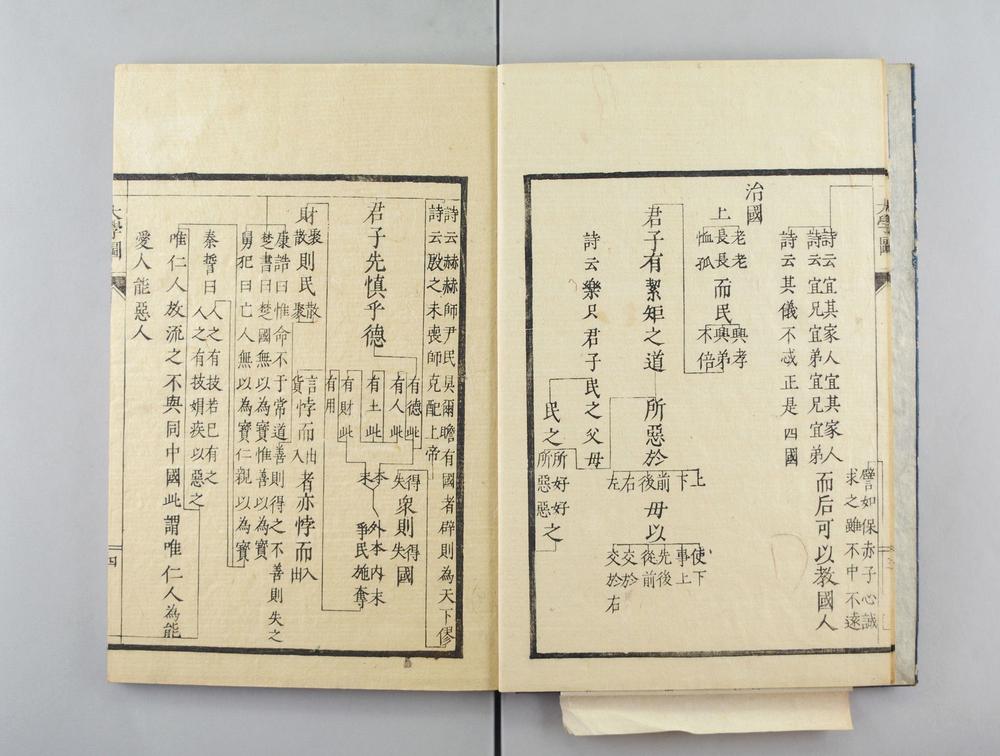 大學圖
譬如保赤子心誠
求之雖不中不遠
詩云宜其家人宜其家人
詩云宜兄宜弟宜兄宜弟
而后可以教國人
詩云其儀不忒正是四國
治國
上
老老
長長
恤孤
而民
興孝
興弟
不倍
君子有絜矩之道
所惡於
上
下
前
後
右
左
毋以
使下
事上
先後
從前
交於
交於右
詩云樂只君子民之父母
民之
所好好
所惡惡之
詩云赫赫師尹民具爾瞻有國者辟則為天下僇
詩云殷之未喪師克配上帝
得衆則得國
失 失
君子先慎乎德
有德此
有人此
有土此
有財此
有用
本
末
外本內末
爭民施奪
財
聚
散
則民
散
聚
言悖而出
貨 入
者亦悖而入
出
康誥曰惟命不于常道善則得之不善則失之
楚書曰楚國無以為寶惟善以為寶
舅犯曰亡人無以為寶仁親以為寶
秦誓曰
人之有技若己有之
人之有技媢疾以惡之
唯仁人放流之不與同中國此謂唯仁人為能
愛人能惡人
大學圖
四